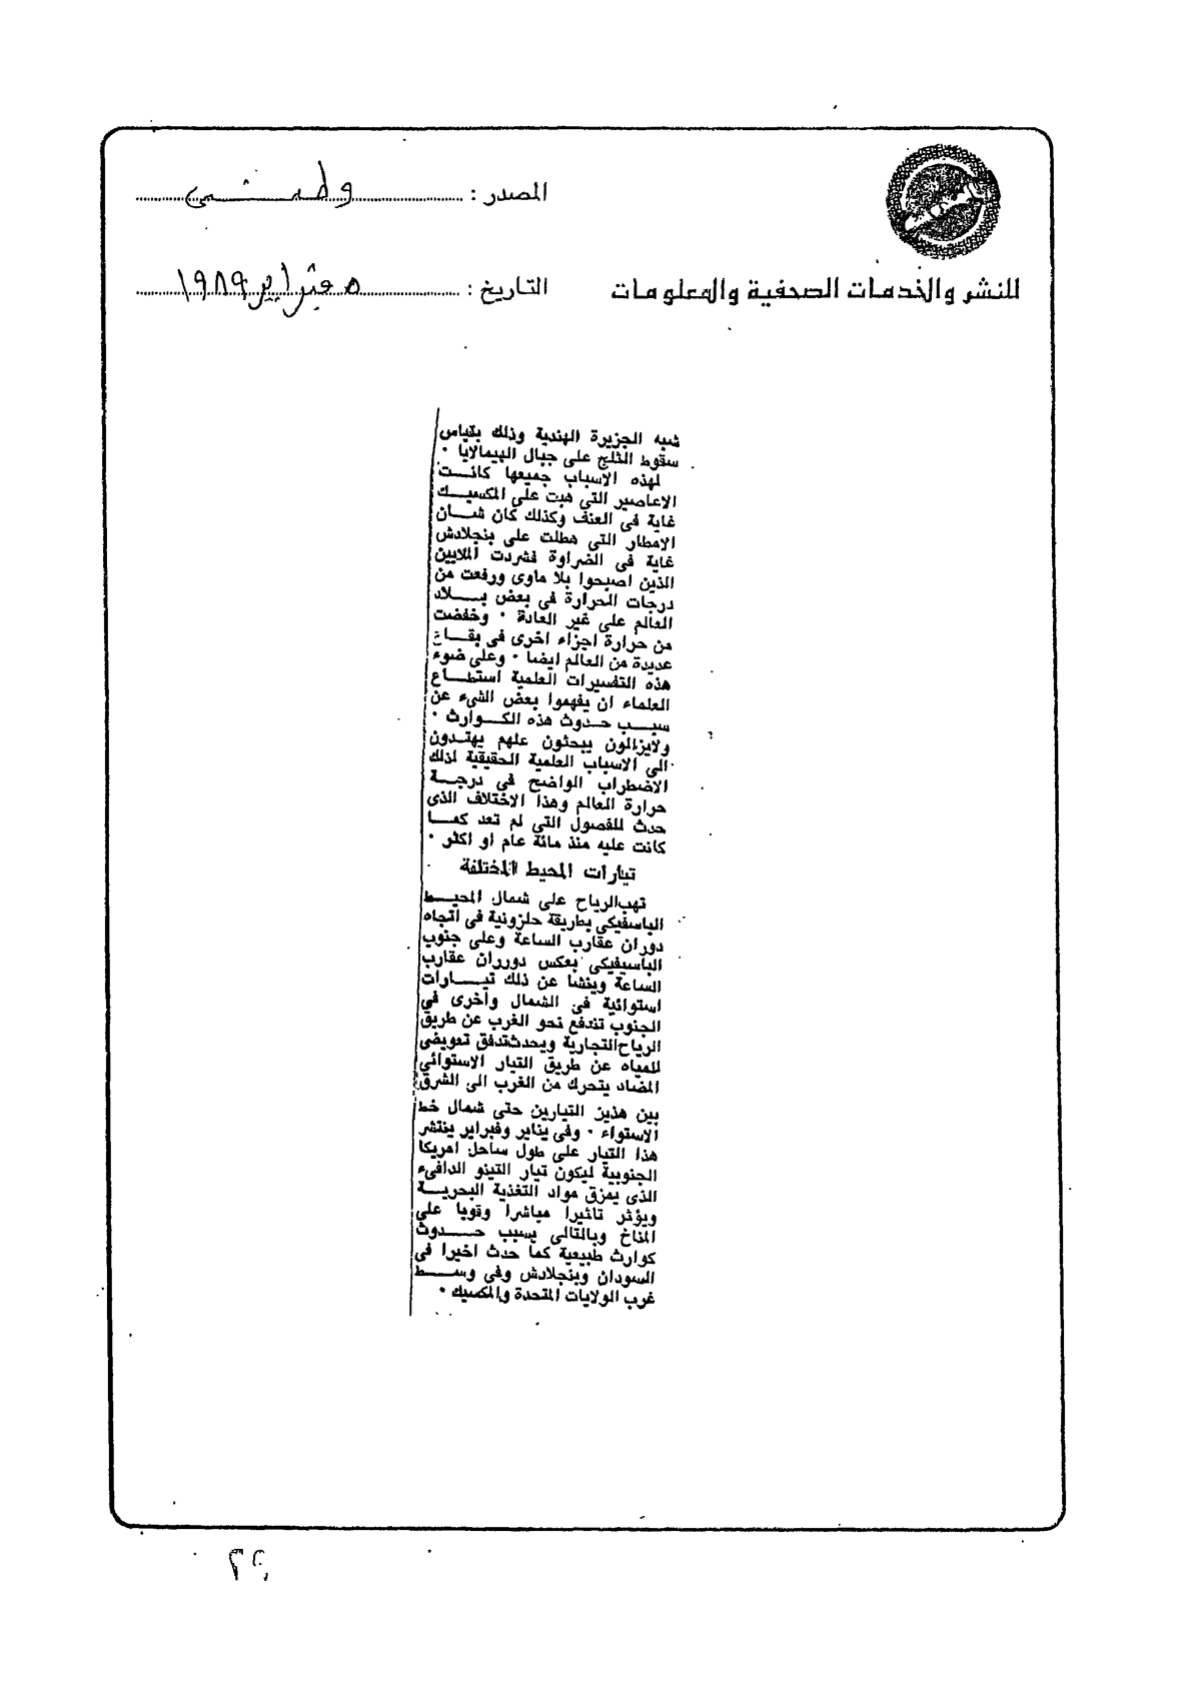 المصدر : وطنى
التاريخ : ٥ فبراير ١٩٨٩
للنشر والخدمات الصحفية والمعلومات
شبه الجزيرة الهندية وذلك بقياس
سقوط الثلج على جبال الهيمالايا .
لهذه الاسباب جميعها كانت
الاعاصير التى هبت على المكسيك
غاية فى العنف وكذلك كان شان
الامطار التى هطلت على بنجلادش
غاية فى الضراوة فشردت الملايين
الذين اصبحوا بلا ماوى ورفعت من
درجات الحرارة فى بعض بلاد
العالم على غير العادة . وخفضت
من حرارة اجزاء اخرى فى بقاع
عديدة من العالم ايضا . وعلى ضوء
هذه التفسيرات العلمية استطاع
العلماء ان يفهموا بعض الشىء عن
سبب حدوث هذه الكوارث .
ولايزالون يبحثون علهم يهتدون
الى الاسباب العلمية الحقيقية لذلك
الاضطراب الواضح فى درجة
حرارة العالم وهذا الاختلاف الذى
حدث للفصول التى لم تعد كما
كانت عليه منذ مائة عام او اكثر .
تيارات المحيط المختلفة
تهب الرياح على شمال المحيط
الباسفيكى بطريقة حلزونية فى اتجاه
دوران عقارب الساعة وعلى جنوب
الباسيفيكى بعكس دورران عقارب
الساعة وينشا عن ذلك تيارات
استوائية فى الشمال وأخرى فى
الجنوب تندفع نحو الغرب عن طريق
الرياح التجارية ويحدث تدفق تعويضى
للمياه عن طريق التيار الاستوائي
المضاد يتحرك من الغرب الى الشرق
بين هذين التيارين حتى شمال خط
الاستواء . وفى يناير وفبراير ينتشر
هذا التيار على طول ساحل امريكا
الجنوبية ليكون تيار النينو الدافىء
الذى يمزق مواد التغذية البحرية
ويؤثر تاثيرا مباشرا وقويا على
المناخ وبالتالى يسبب حدوث
كوارث طبيعية كما حدث اخيرا فى
السودان وبنجلادش وفى وسط
غرب الولايات المتحدة والمكسيك .